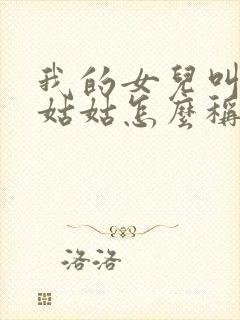 我的女兒叫
姑姑怎麼稱
洛洛